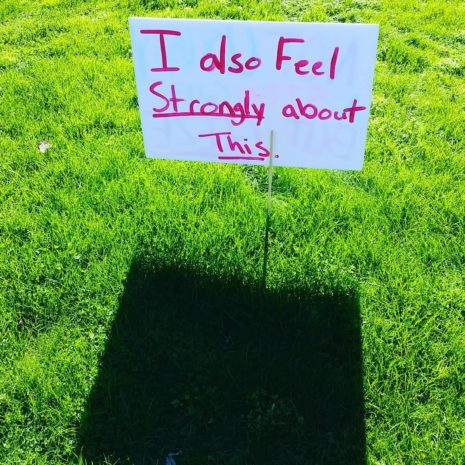 I also Feel
Strongly about
This.